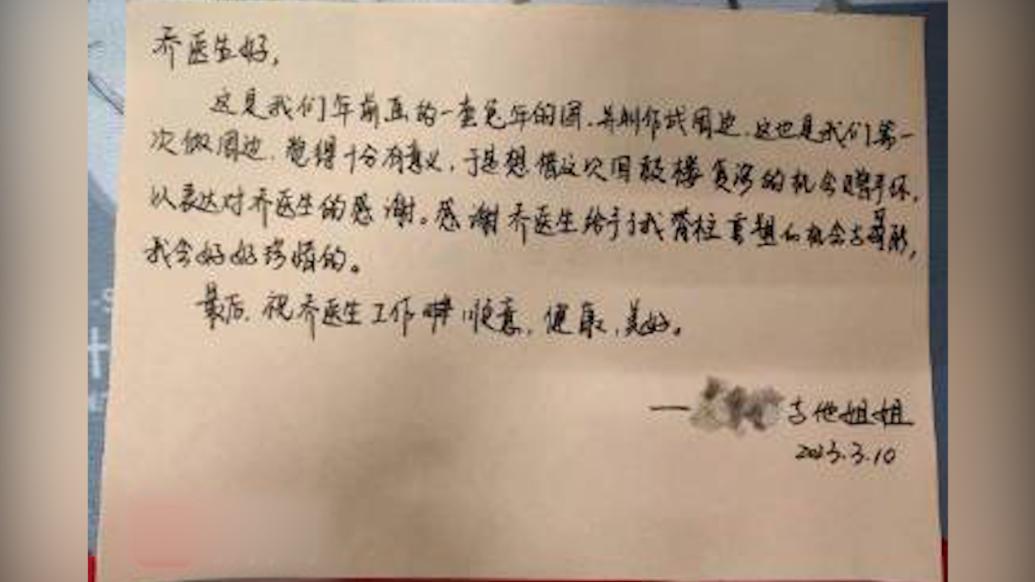 乔医生好,
这是我们年前画的一套兔年的图,并制作成周边,这也是我们第一
次做周边,觉得十分有意义,于是想借这次回鼓楼复诊的机会赠予您,
以表达对乔医生的感谢。感谢乔医生给予了我脊柱重塑的机会与
我会好好珍惜的。
最后,祝乔医生工作顺意,健康,美好。
—
与他姐姐
2023.3.10